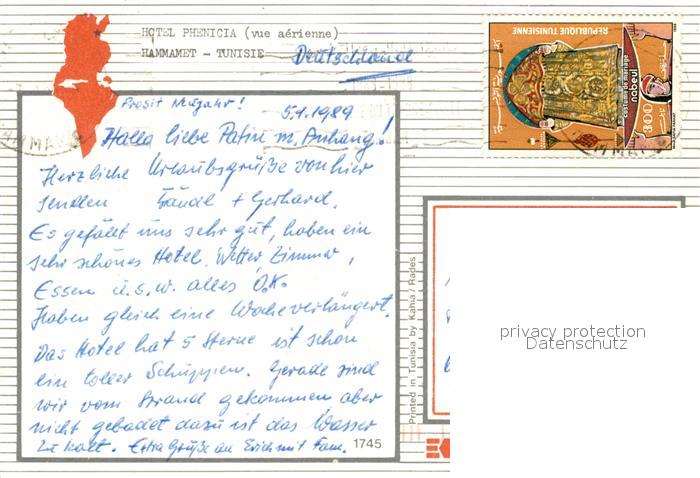 HOTEL PHENICIA (vue aérienne)
HAMMAMET - TUNISIE
Deutschland
Prosit Neujahr!
5.1.1989
Hallo liebe Patin m. Anhang!
Herzliche Urlaubsgrüße von hier
senden + Gerhard.
Es gefällt uns sehr gut, haben ein
sehr schönes Hotel. Wetter, Zimmer,
Essen u.s.w. alles O.K.
Haben gleich eine Woche verlängert.
Das Hotel hat 5 Sterne ist schon
ein toller Schuppen. Gerade sind
wir vom Strand gekommen aber
nicht gebadet dazu ist das Wasser
zu kalt. Extra Grüße an Erich mit Fam.
1745
Printed in Tunisia by Kahia / Rades
REPUBLIQUE TUNISIENNE
costume de mariage
nabeul
300
privacy protection
Datenschutz